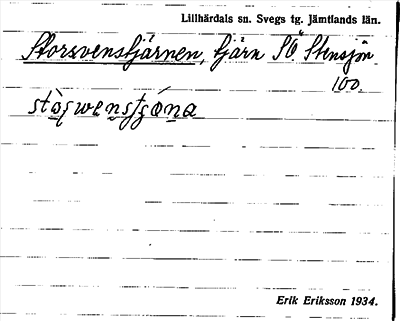 Lillhärdals sn. Svegs tg. Jämtlands län.
Storsvenstjärnen, tjärn SÖ. Stensjön
100.
Erik Eriksson 1934.